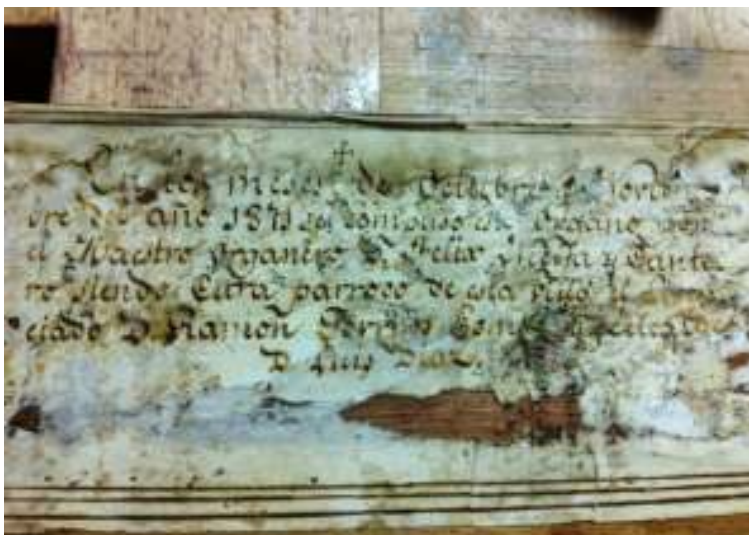 ✝
En los meses de Octubre y Noviem
bre del año 1871 se compuso este Organo por
el Maestro Organero D. Felix y Cante
ro siendo Cura parroco de esta villa el
ciado D. Ramon Gomez y
D. Luis